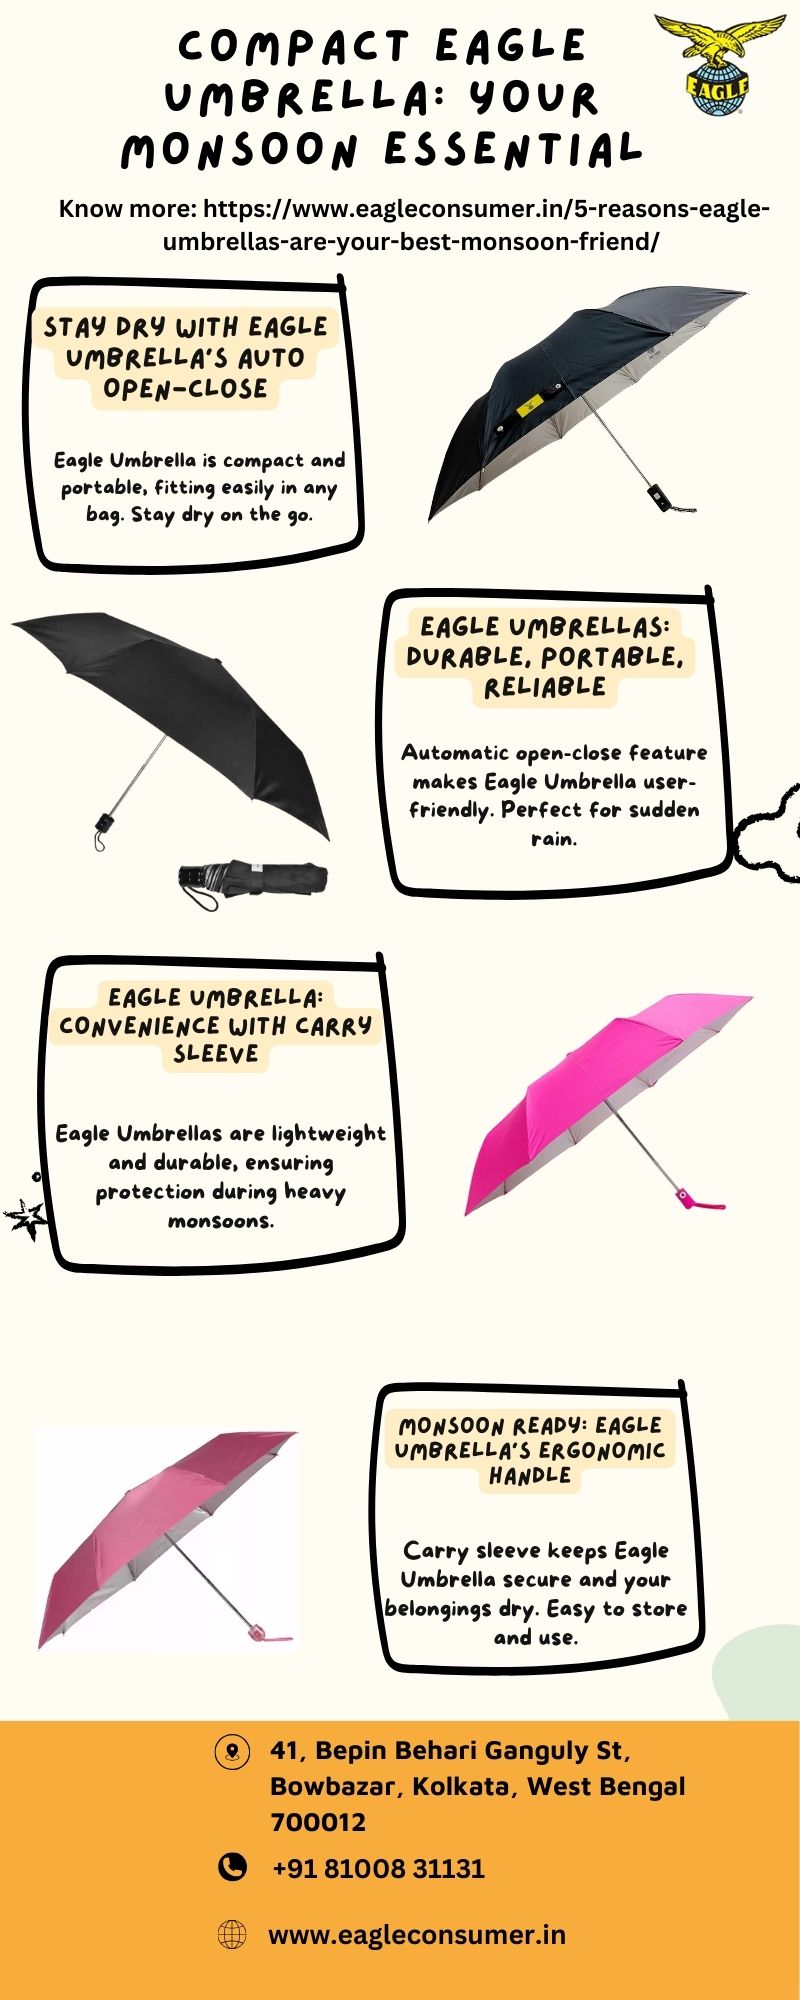 COMPACT EAGLE
UMBRELLA: YOUR
MONSOON ESSENTIAL
EAGLE
Know more: https://www.eagleconsumer.in/5-reasons-eagle-
umbrellas-are-your-best-monsoon-friend/
STAY DRY WITH EAGLE
UMBRELLA'S AUTO
OPEN-CLOSE
Eagle Umbrella is compact and
portable, fitting easily in any
bag. Stay dry on the go.
EAGLE UMBRELLAS:
DURABLE, PORTABLE,
RELIABLE
Automatic open-close feature
makes Eagle Umbrella user-
friendly. Perfect for sudden
rain.
EAGLE UMBRELLA:
CONVENIENCE WITH CARRY
SLEEVE
Eagle Umbrellas are lightweight
and durable, ensuring
protection during heavy
monsoons.
MONSOON READY: EAGLE
UMBRELLA'S ERGONOMIC
HANDLE
Carry sleeve keeps Eagle
Umbrella secure and your
belongings dry. Easy to store
and use.
41, Bepin Behari Ganguly St,
Bowbazar, Kolkata, West Bengal
700012
+91 81008 31131
www.eagleconsumer.in